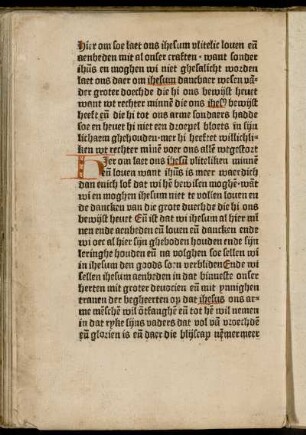 Hier om soe laet ons ihesum vlitelic louen eñ
aenbeden mit al onser craften · want sonder
ihũs en moghen wi niet ghesalicht worden
laet ons daer om ihesum dancbaer wesen vã
der groter doechde die hi ons bewijst heuet
want wt rechter minnẽ die ons ihesus bewijst
heeft eñ die hi tot ons arme sondaers hadde
soe en heuet hi niet een droepel bloets in sijn
licharm ghehouden mer hi heefret willichli-
ken wt rechter minẽ voer ons allẽ wtgestort
Hier om laet ons ihesũ vliteliken minnẽ
eñ louen want ihũs is meer waerdich
dan enich lof dat wi hẽ bewisen moghẽ wãt
wi en moghen ihesum niet te vollen louen eñ
de dancken van die grote duecht die hi ons
bewijst heuet Eñ ist dat wi ihesum al hier mi
nen ende aenbeden eñ louen eñ dancken ende
wi oec al hier sijn gheboden houden ende sijn
leringhe houden eñ na volghen soe sellen wi
in ihesum den goods soen verbliden Ende wi
sellen ihesum aenbeden in dat binneste onser
herten mit groter deuocien eñ mit ynnighen
tranen der begheerten op dat ihesus ons ar-
me mẽschẽ wil õtfanghẽ eñ tot hẽ wil nemen
in dat ryke sijns vaders dat vol vã vroechdẽ
eñ glorien is eñ daer die blijscap nẽmermeer